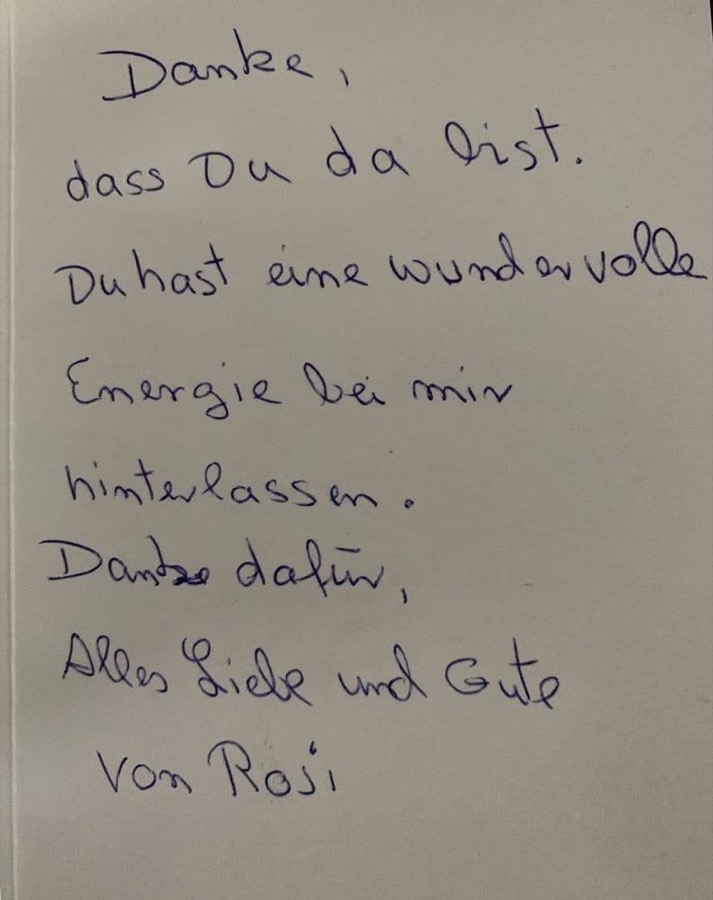 Danke,
dass Du da bist.
Du hast eine wundervolle
Energie bei mir
hinterlassen.
Danke dafür,
Alles Liebe und Gute
von Rosi